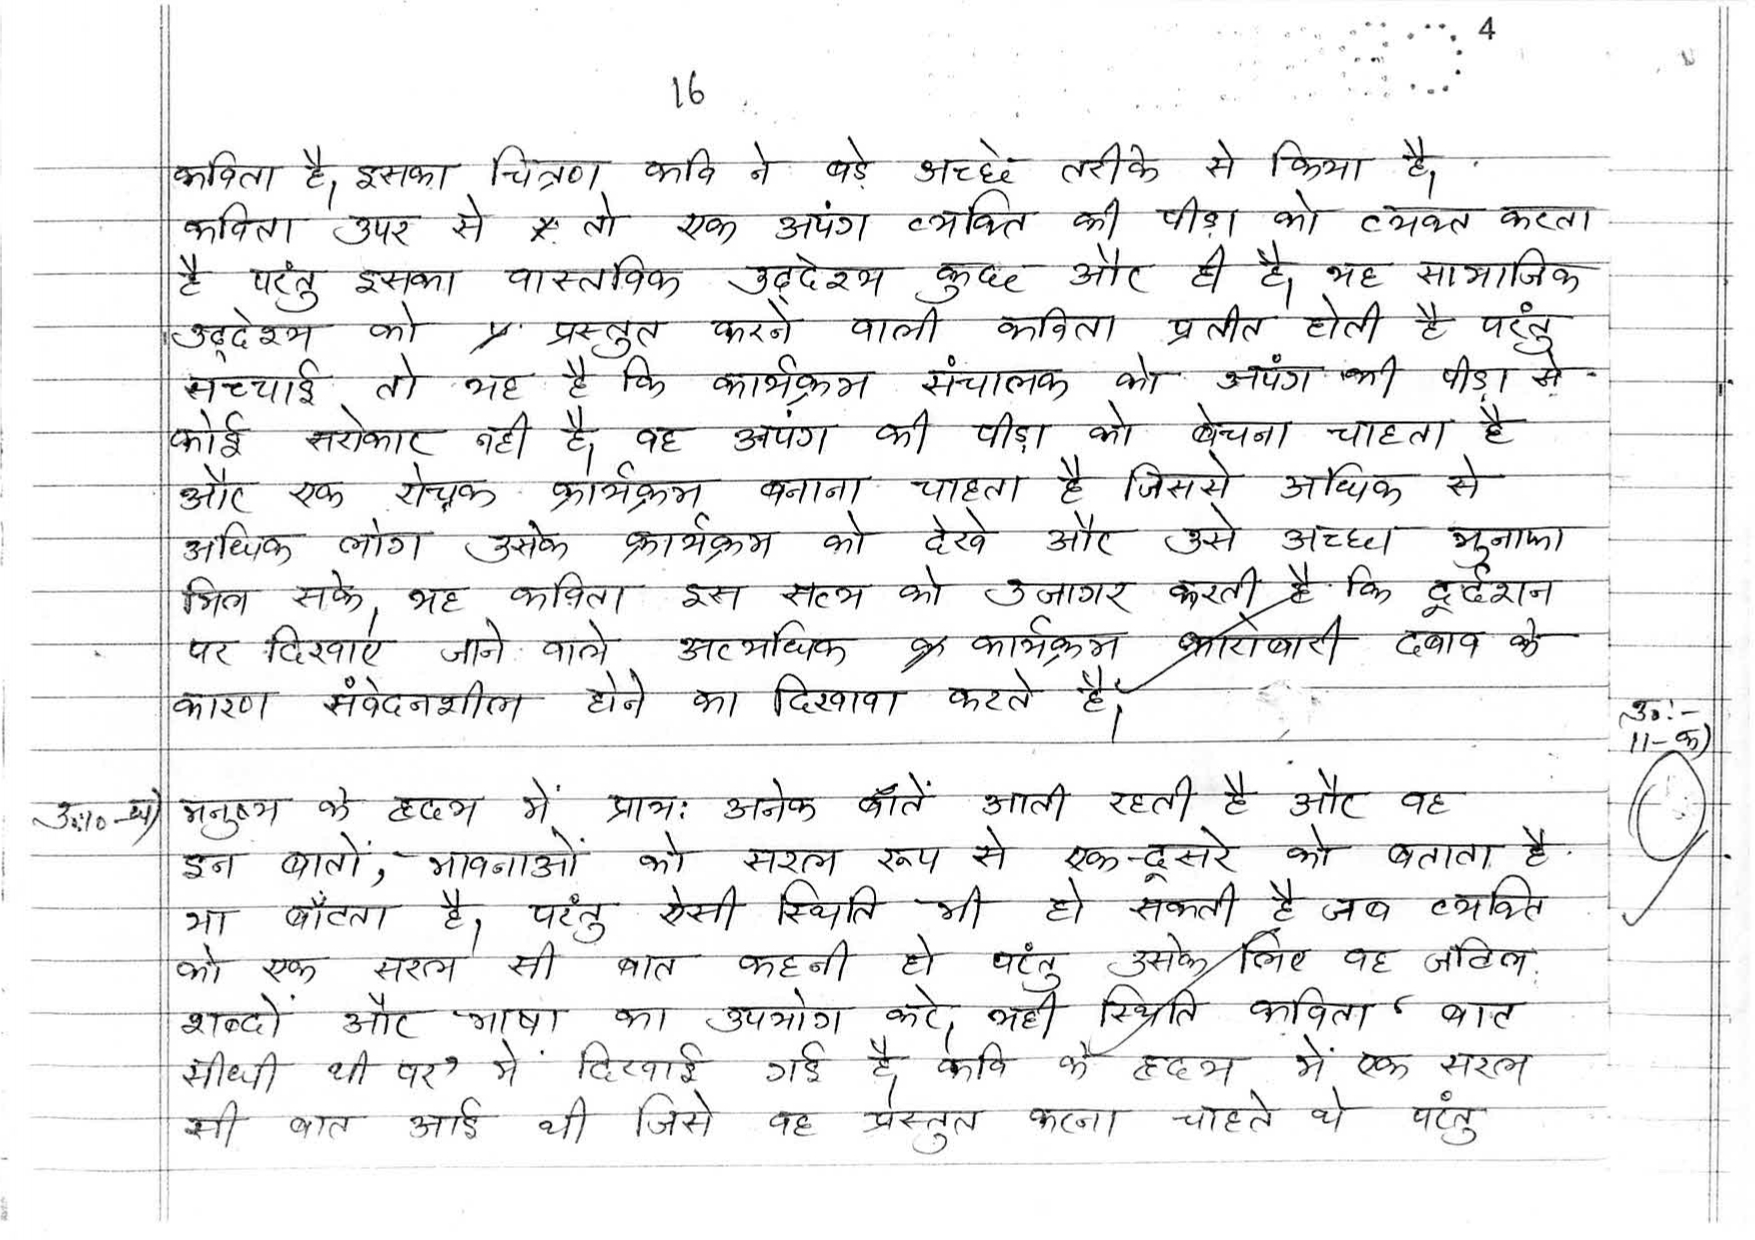 4
16
कविता है, इसका चित्रण कवि ने बड़े अच्छे तरीके से किया है,
कविता उपर से तो एक अपंग व्यक्ति की पीड़ा को व्यक्त करता
है परंतु इसका वास्तविक उद्देश्य कुछ और ही है, यह सामाजिक
उद्देश्य को प्रस्तुत करने वाली कविता प्रतीत होती है परंतु
सच्चाई तो यह है कि कार्यक्रम संचालक को अपंग की पीड़ा से
कोई सरोकार नही है, वह अपंग की पीड़ा को बेचना चाहता है
और एक रोचक कार्यक्रम बनाना चाहता है जिससे अधिक से
अधिक लोग उसके कार्यक्रम को देखे और उसे अच्छा मुनाफा
मिल सके, यह कविता इस सत्य को उजागर करती है कि दूर्दशन
पर दिखाए जाने वाले अत्यधिक कार्यक्रम कारोबारी दबाव के
कारण संवेदनशील होने का दिखावा करते है,
उ०:-
11-क)
उ:10-घ) मनुष्य के हृदय में प्राय: अनेक बातें आती रहती है और वह
इन बातों, भावनाओं को सरल रूप से एक-दूसरे को बताता है
या बाँटता है, परंतु ऐसी स्थिति भी हो सकती है जब व्यक्ति
को एक सरल सी बात कहनी हो परंतु उसके लिए वह जटिल
शब्दों और भाषा का उपयोग करे, यही स्थिति कविता ‘ बात
सीधी थी पर’ में दिखाई गई है, कवि के हृदय में एक सरल
सी बात आई थी जिसे वह प्रस्तुत करना चाहते थे परंतु